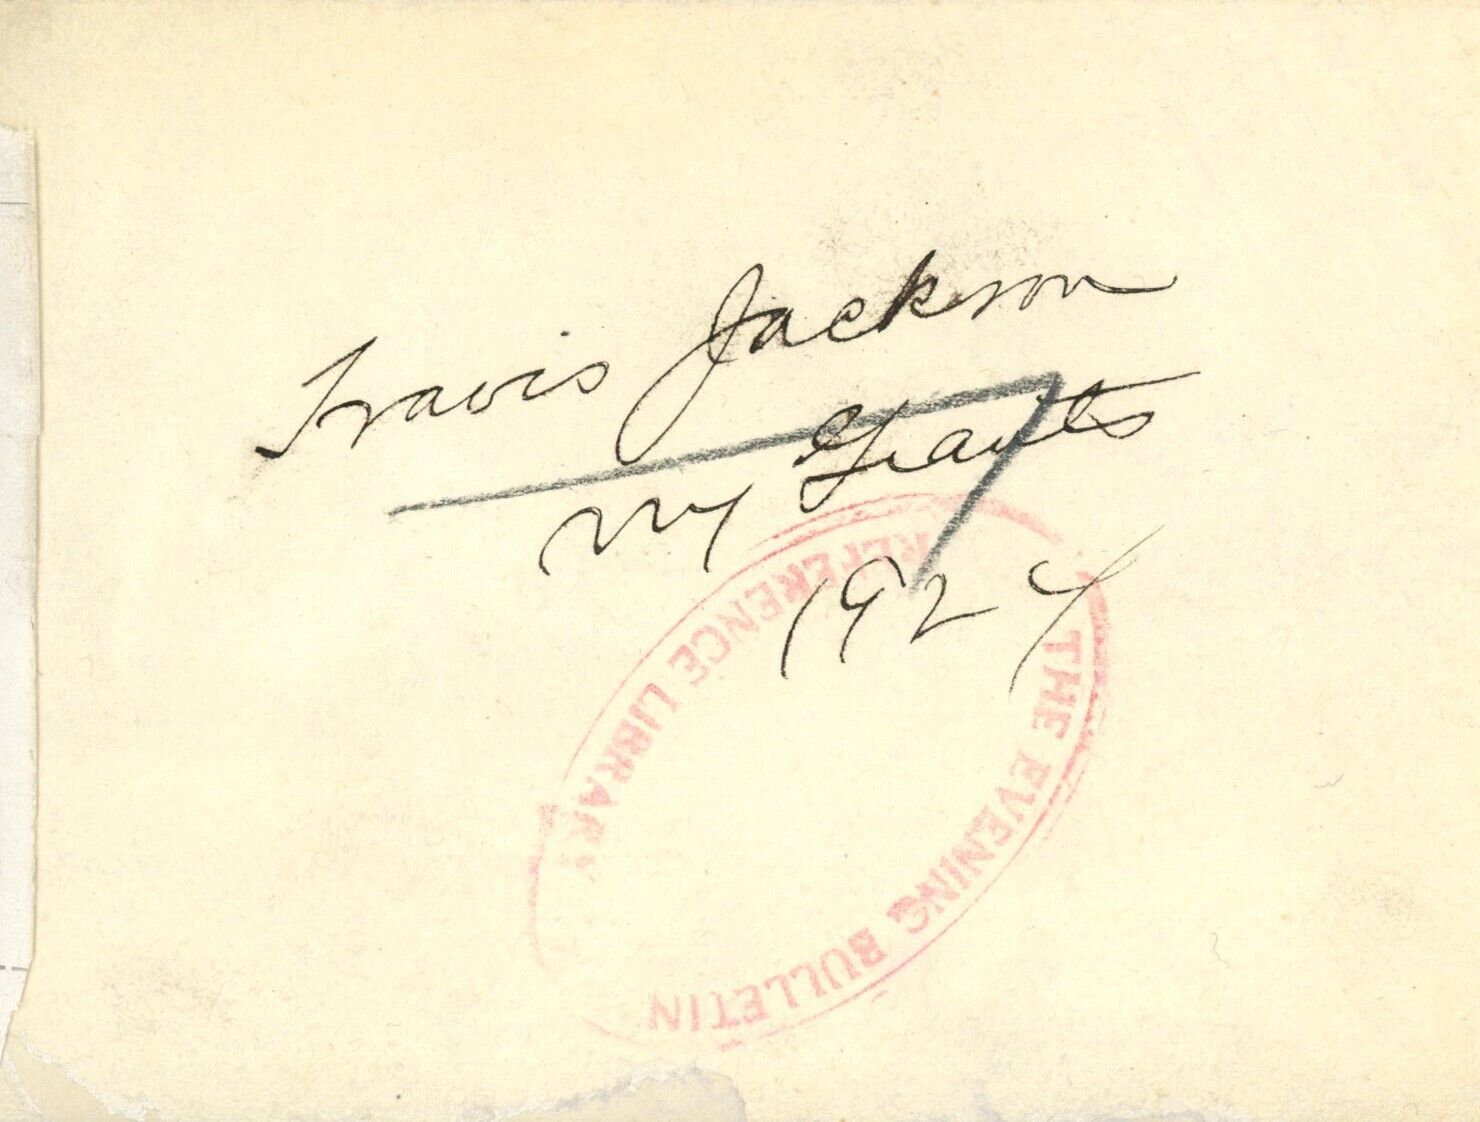 Travis Jackson
NY Giants
1924
THE EVENING BULLETIN
REFERENCE LIBRARY